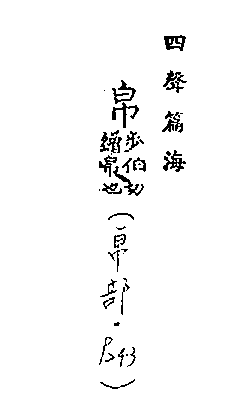 四聲篇海
帛
步伯切
繒帛也
(帛部・